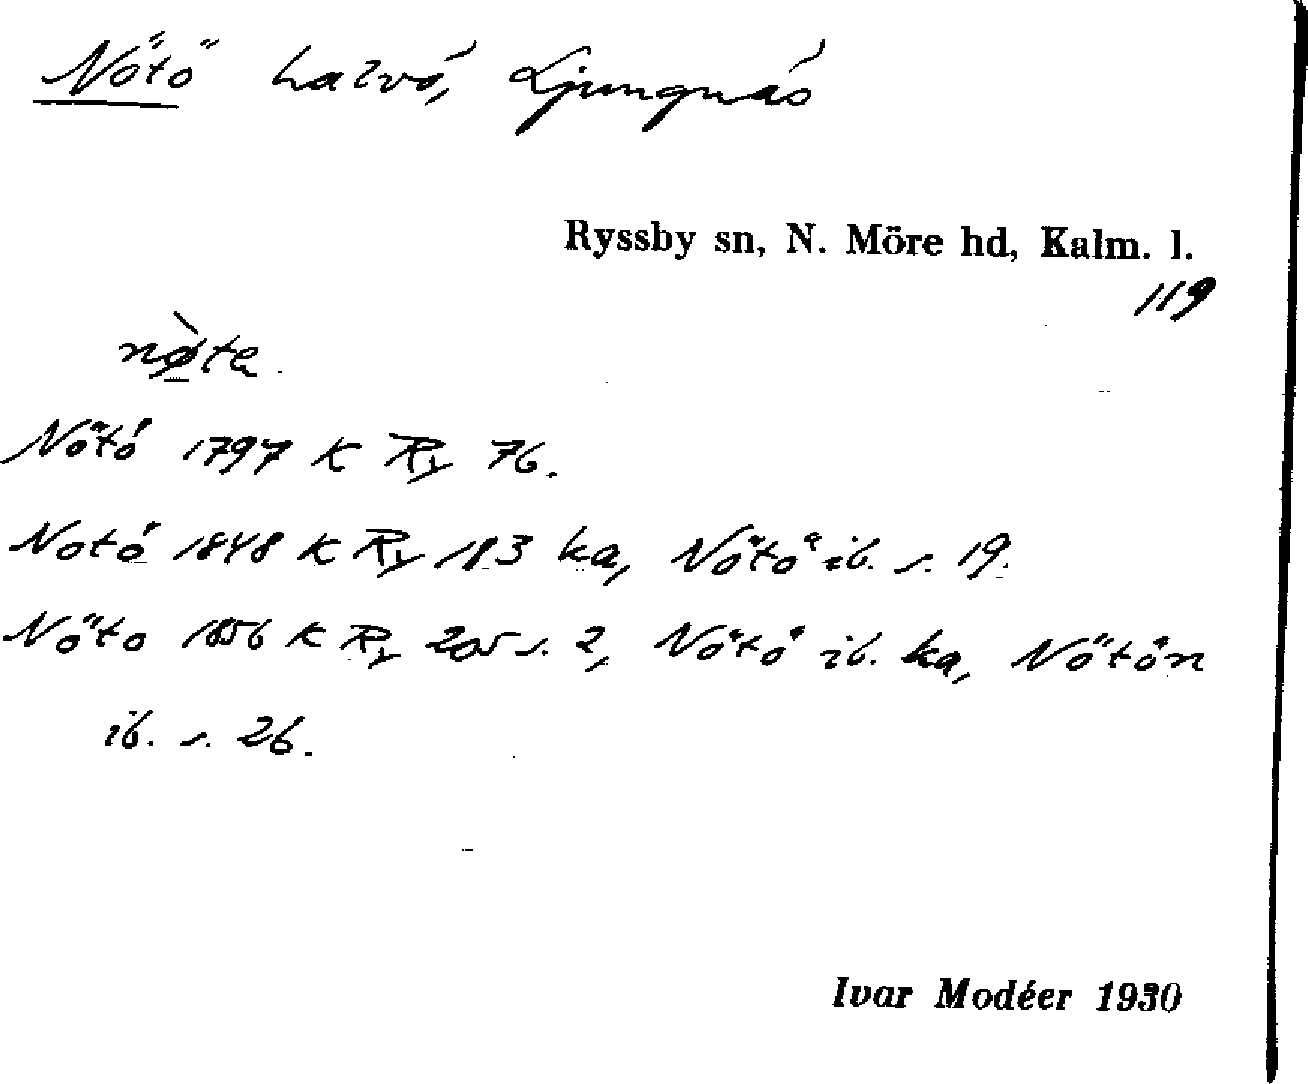 Nötö halvö, Ljungnäs
Ryssby sn, N. Möre hd, Kalm. l.
119
nø̀ta.
Nötö 1797 K Ry 76.
Notö 1848 K Ry 183 ka, Nötö ib. s. 19.
Nöto 1856 K Ry 205 s. 2, Nötö ib. ka, Nötön
ib. s. 26.
Ivar Modéer 1930